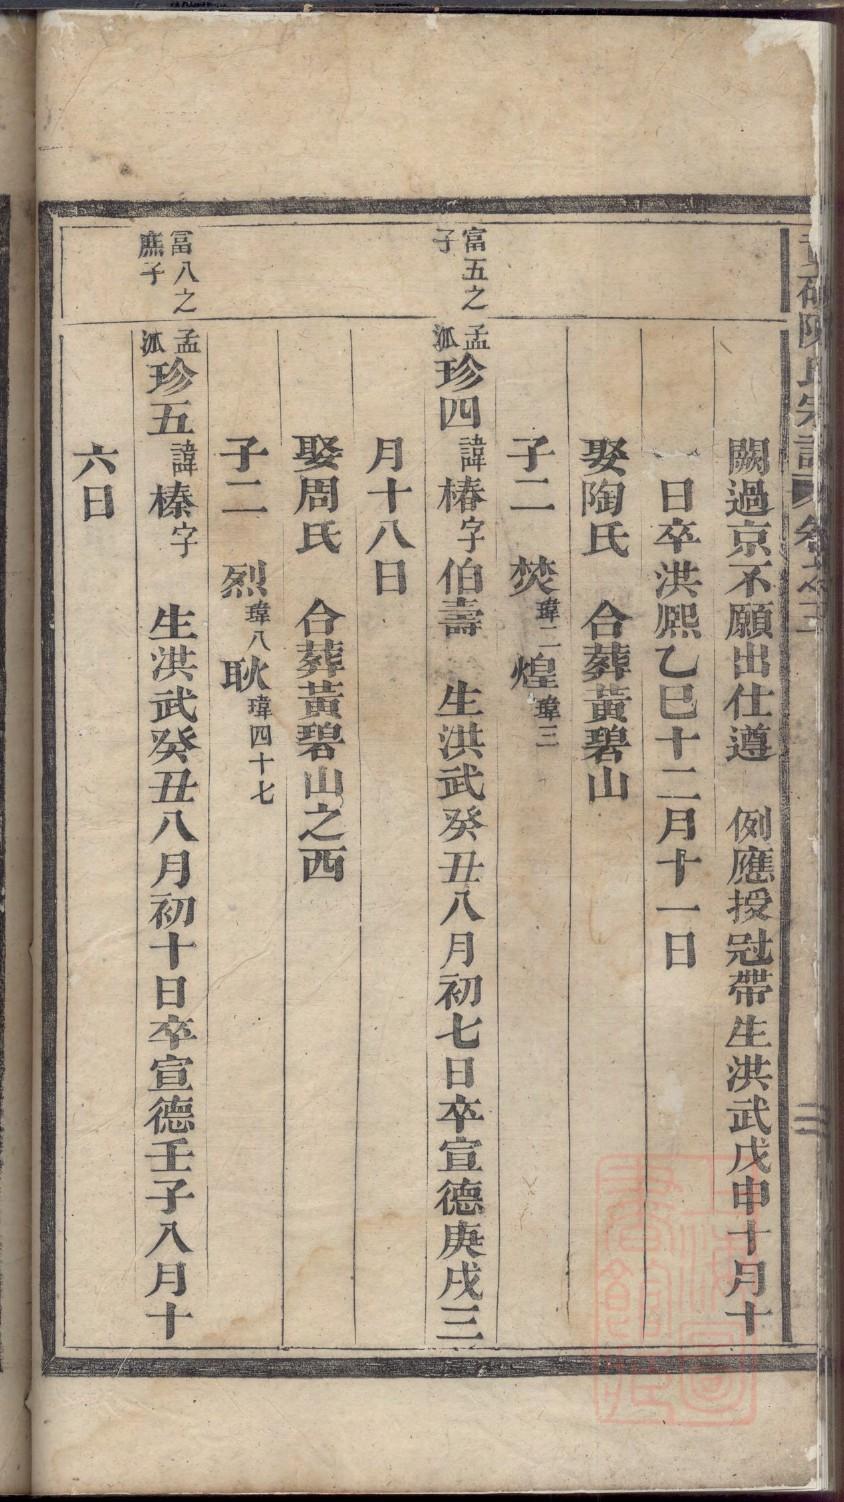 陳氏宗譜 卷之三
闕過京不願出仕遵　例應授冠帶生洪武戊申十月十
日卒洪熙乙巳十二月十一日
娶陶氏　合葬黃碧山
子二　焚瑋二　煌瑋三
富五之子
孟派珍四諱椿字伯壽　生洪武癸丑八月初七日卒宣德庚戌三
月十八日
娶周氏　合葬黃碧山之西
子二　烈瑋八　耿瑋四十七
富八之庶子
孟派珍五諱榛字　生洪武癸丑八月初十日卒宣德壬子八月十
六日